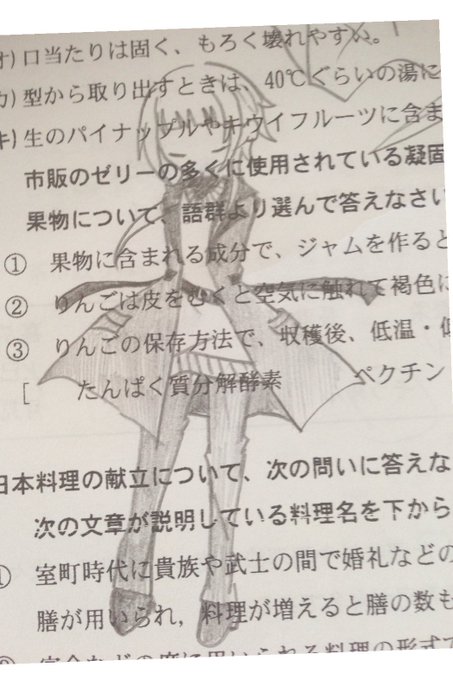 オ) 口当たりは固く、もろく壊れやすい。
カ) 型から取り出すときは、40℃ぐらいの湯に
キ) 生のパイナップルやキウイフルーツに含ま
市販のゼリーの多くに使用されている凝固
果物について、語群より選んで答えなさい
① 果物に含まれる成分で、ジャムを作ると
② りんごは皮をむくと空気に触れて褐色に
③ りんごの保存方法で、収穫後、低温・低
[ たんぱく質分解酵素 ペクチン
日本料理の献立について、次の問いに答えな
次の文章が説明している料理名を下から
① 室町時代に貴族や武士の間で婚礼などの
膳が用いられ，料理が増えると膳の数も